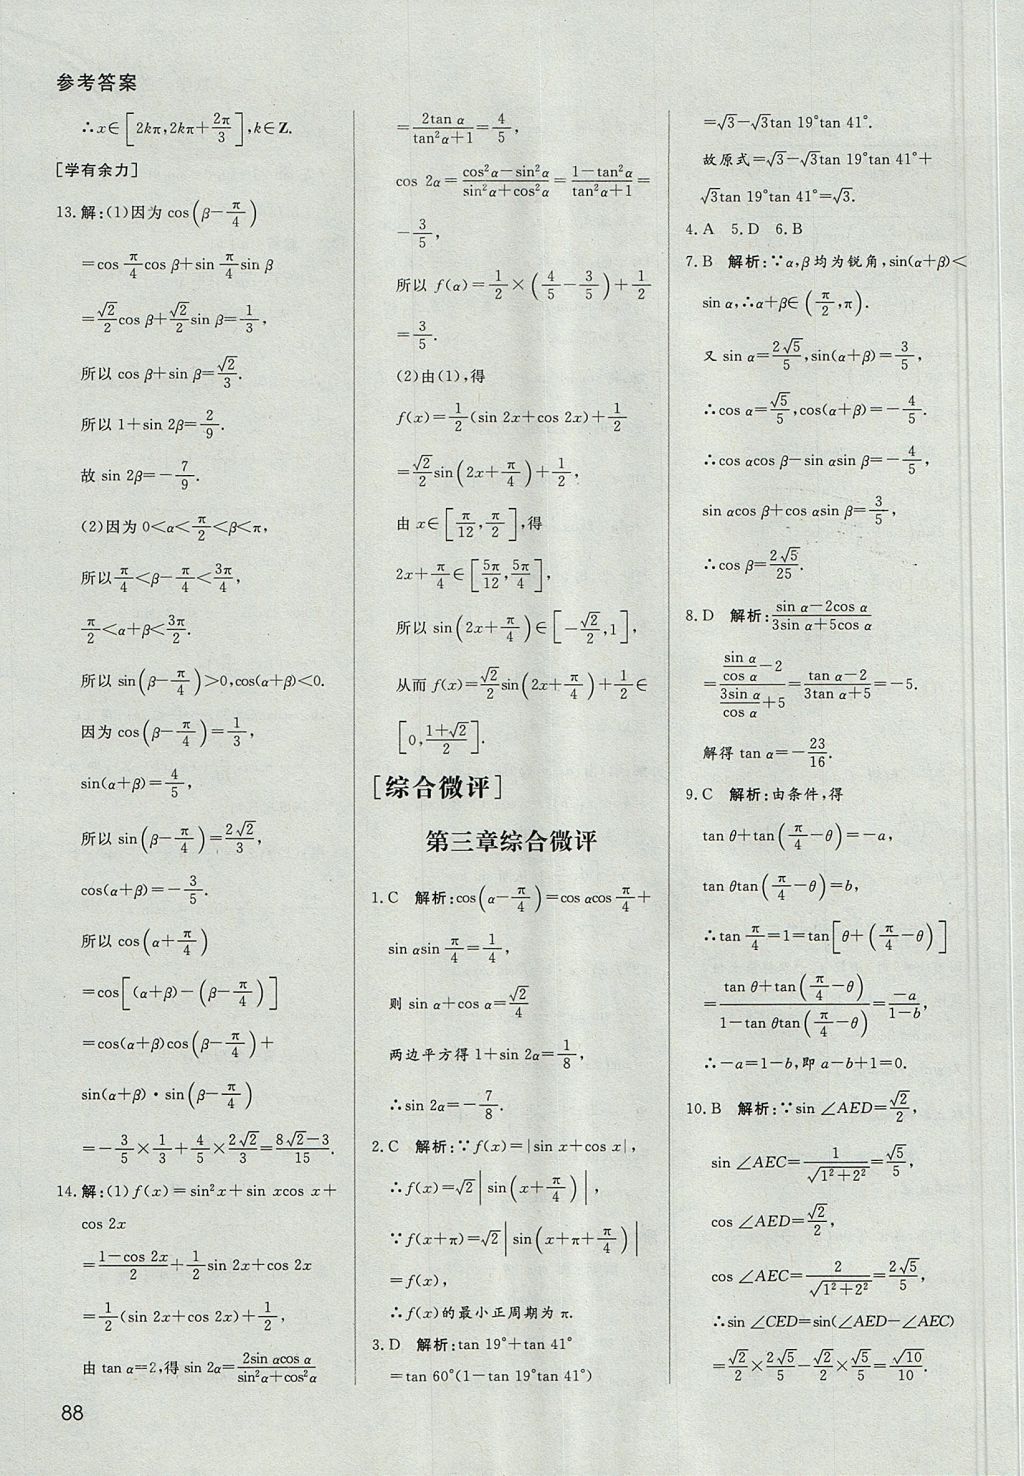 参考答案
∴x∈[2kπ,2kπ+2π/3],k∈Z.
[学有余力]
13.解:(1)因为 cos(β-π/4)
=cos π/4 cos β+sin π/4 sin β
=√2/2 cos β+√2/2 sin β=1/3,
所以 cos β+sin β=√2/3.
所以 1+sin 2β=2/9.
故 sin 2β=-7/9.
(2)因为 0<α<π/2<β<π,
所以 π/4<β-π/4<3π/4,
π/2<α+β<3π/2.
所以 sin(β-π/4)>0,cos(α+β)<0.
因为 cos(β-π/4)=1/3,
sin(α+β)=4/5,
所以 sin(β-π/4)=2√2/3,
cos(α+β)=-3/5.
所以 cos(α+π/4)
=cos[(α+β)-(β-π/4)]
=cos(α+β)cos(β-π/4)+
sin(α+β)·sin(β-π/4)
=-3/5×1/3+4/5×2√2/3=(8√2-3)/15.
14.解:(1)f(x)=sin²x+sin xcos x+
cos 2x
=(1-cos 2x)/2+1/2 sin 2x+cos 2x
=1/2(sin 2x+cos 2x)+1/2,
由 tan α=2,得 sin 2α=2sin αcos α/(sin²α+cos²α)
88
=2tan α/(tan²α+1)=4/5,
cos 2α=(cos²α-sin²α)/(sin²α+cos²α)=(1-tan²α)/(tan²α+1)=
-3/5,
所以 f(α)=1/2×(4/5-3/5)+1/2
=3/5.
(2)由(1),得
f(x)=1/2(sin 2x+cos 2x)+1/2
=√2/2 sin(2x+π/4)+1/2,
由 x∈[π/12,π/2],得
2x+π/4∈[5π/12,5π/4],
所以 sin(2x+π/4)∈[-√2/2,1],
从而 f(x)=√2/2 sin(2x+π/4)+1/2∈
[0,(1+√2)/2].
[综合微评]
第三章综合微评
1.C 解析:cos(α-π/4)=cos αcos π/4+
sin αsin π/4=1/4,
则 sin α+cos α=√2/4
两边平方得 1+sin 2α=1/8,
∴sin 2α=-7/8.
2.C 解析:∵f(x)=|sin x+cos x|,
∴f(x)=√2|sin(x+π/4)|,
∵f(x+π)=√2|sin(x+π+π/4)|
=f(x),
∴f(x)的最小正周期为 π.
3.D 解析:tan 19°+tan 41°
=tan 60°(1-tan 19°tan 41°)
=√3-√3tan 19°tan 41°.
故原式=√3-√3tan 19°tan 41°+
√3tan 19°tan 41°=√3.
4.A 5.D 6.B
7.B 解析:∵α,β均为锐角,sin(α+β)<
sin α,∴α+β∈(π/2,π).
又 sin α=2√5/5,sin(α+β)=3/5,
∴cos α=√5/5,cos(α+β)=-4/5.
∴cos αcos β-sin αsin β=-4/5,
sin αcos β+cos αsin β=3/5,
∴cos β=2√5/25.
8.D 解析:(sin α-2cos α)/(3sin α+5cos α)
=(sin α/cos α-2)/(3sin α/cos α+5)=(tan α-2)/(3tan α+5)=-5.
解得 tan α=-23/16.
9.C 解析:由条件,得
tan θ+tan(π/4-θ)=-a,
tan θtan(π/4-θ)=b,
∴tan π/4=1=tan[θ+(π/4-θ)]
=(tan θ+tan(π/4-θ))/(1-tan θtan(π/4-θ))=-a/(1-b),
∴-a=1-b,即 a-b+1=0.
10.B 解析:∵sin ∠AED=√2/2,
sin ∠AEC=1/√(1²+2²)=√5/5,
cos ∠AED=√2/2,
cos ∠AEC=2/√(1²+2²)=2√5/5,
∴sin ∠CED=sin(∠AED-∠AEC)
=√2/2×2√5/5-√2/2×√5/5=√10/10.